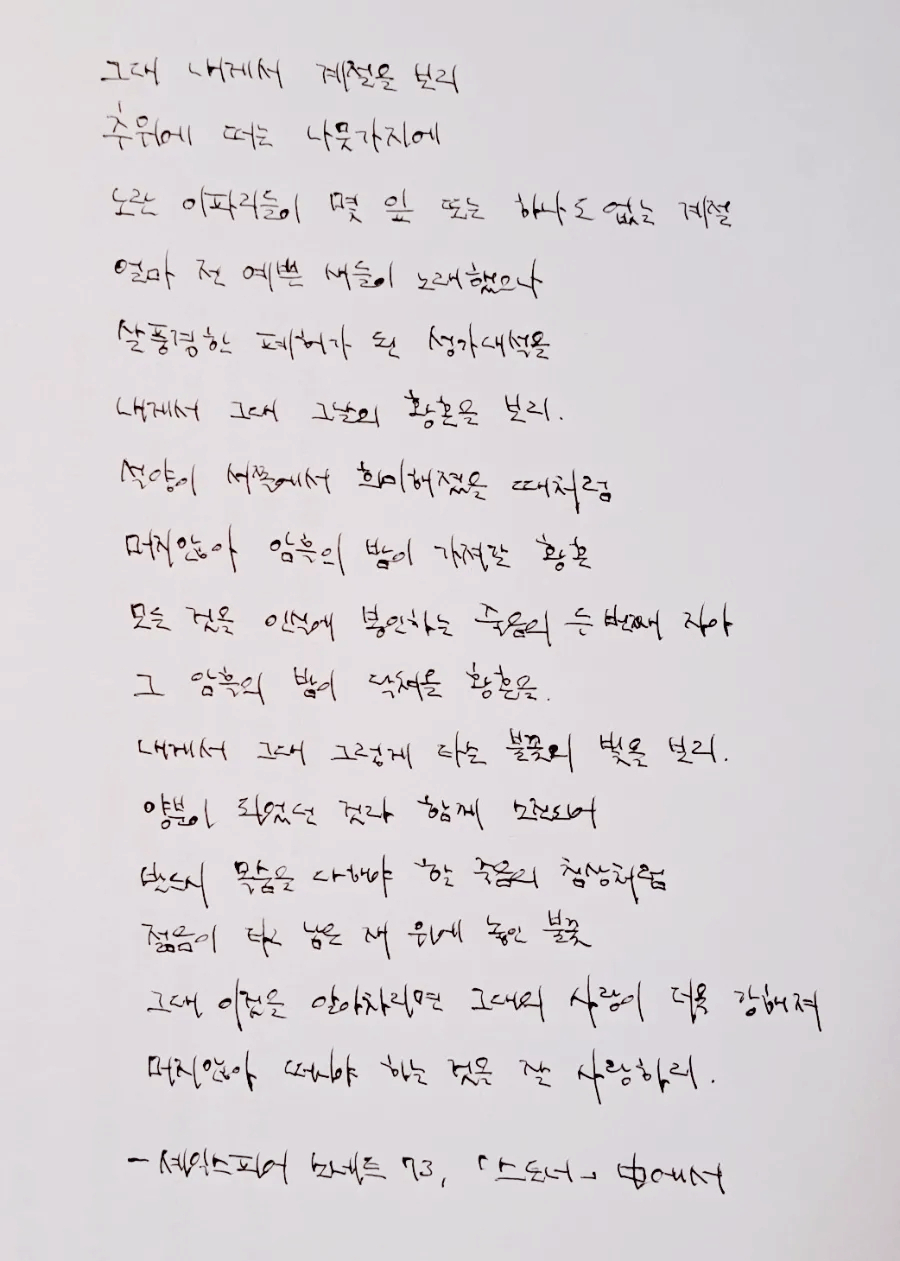 그대 내게서 계절을 보리
추위에 떠는 나뭇가지에
노란 이파리들이 몇 잎 또는 하나도 없는 계절
얼마 전 예쁜 새들이 노래했으나
살풍경한 폐허가 된 성가대석을
내게서 그대 그날의 황혼을 보리.
석양이 서쪽에서 희미해졌을 때처럼
머지않아 암흑의 밤이 가져갈 황혼
모든 것을 안식에 봉인하는 죽음의 두 번째 자아
그 암흑의 밤이 닥쳐올 황혼을.
내게서 그대 그렇게 타는 불꽃의 빛을 보리.
양분이 되었던 것과 함께 소진되어
반드시 목숨을 다해야 할 죽음의 침상처럼
젊음이 타고 남은 재 위에 놓인 불꽃
그대 이것을 알아차리면 그대의 사랑이 더욱 강해져
머지않아 떠나야 하는 것을 잘 사랑하리.
- 셰익스피어 소네트 73, 「스토너」 中에서